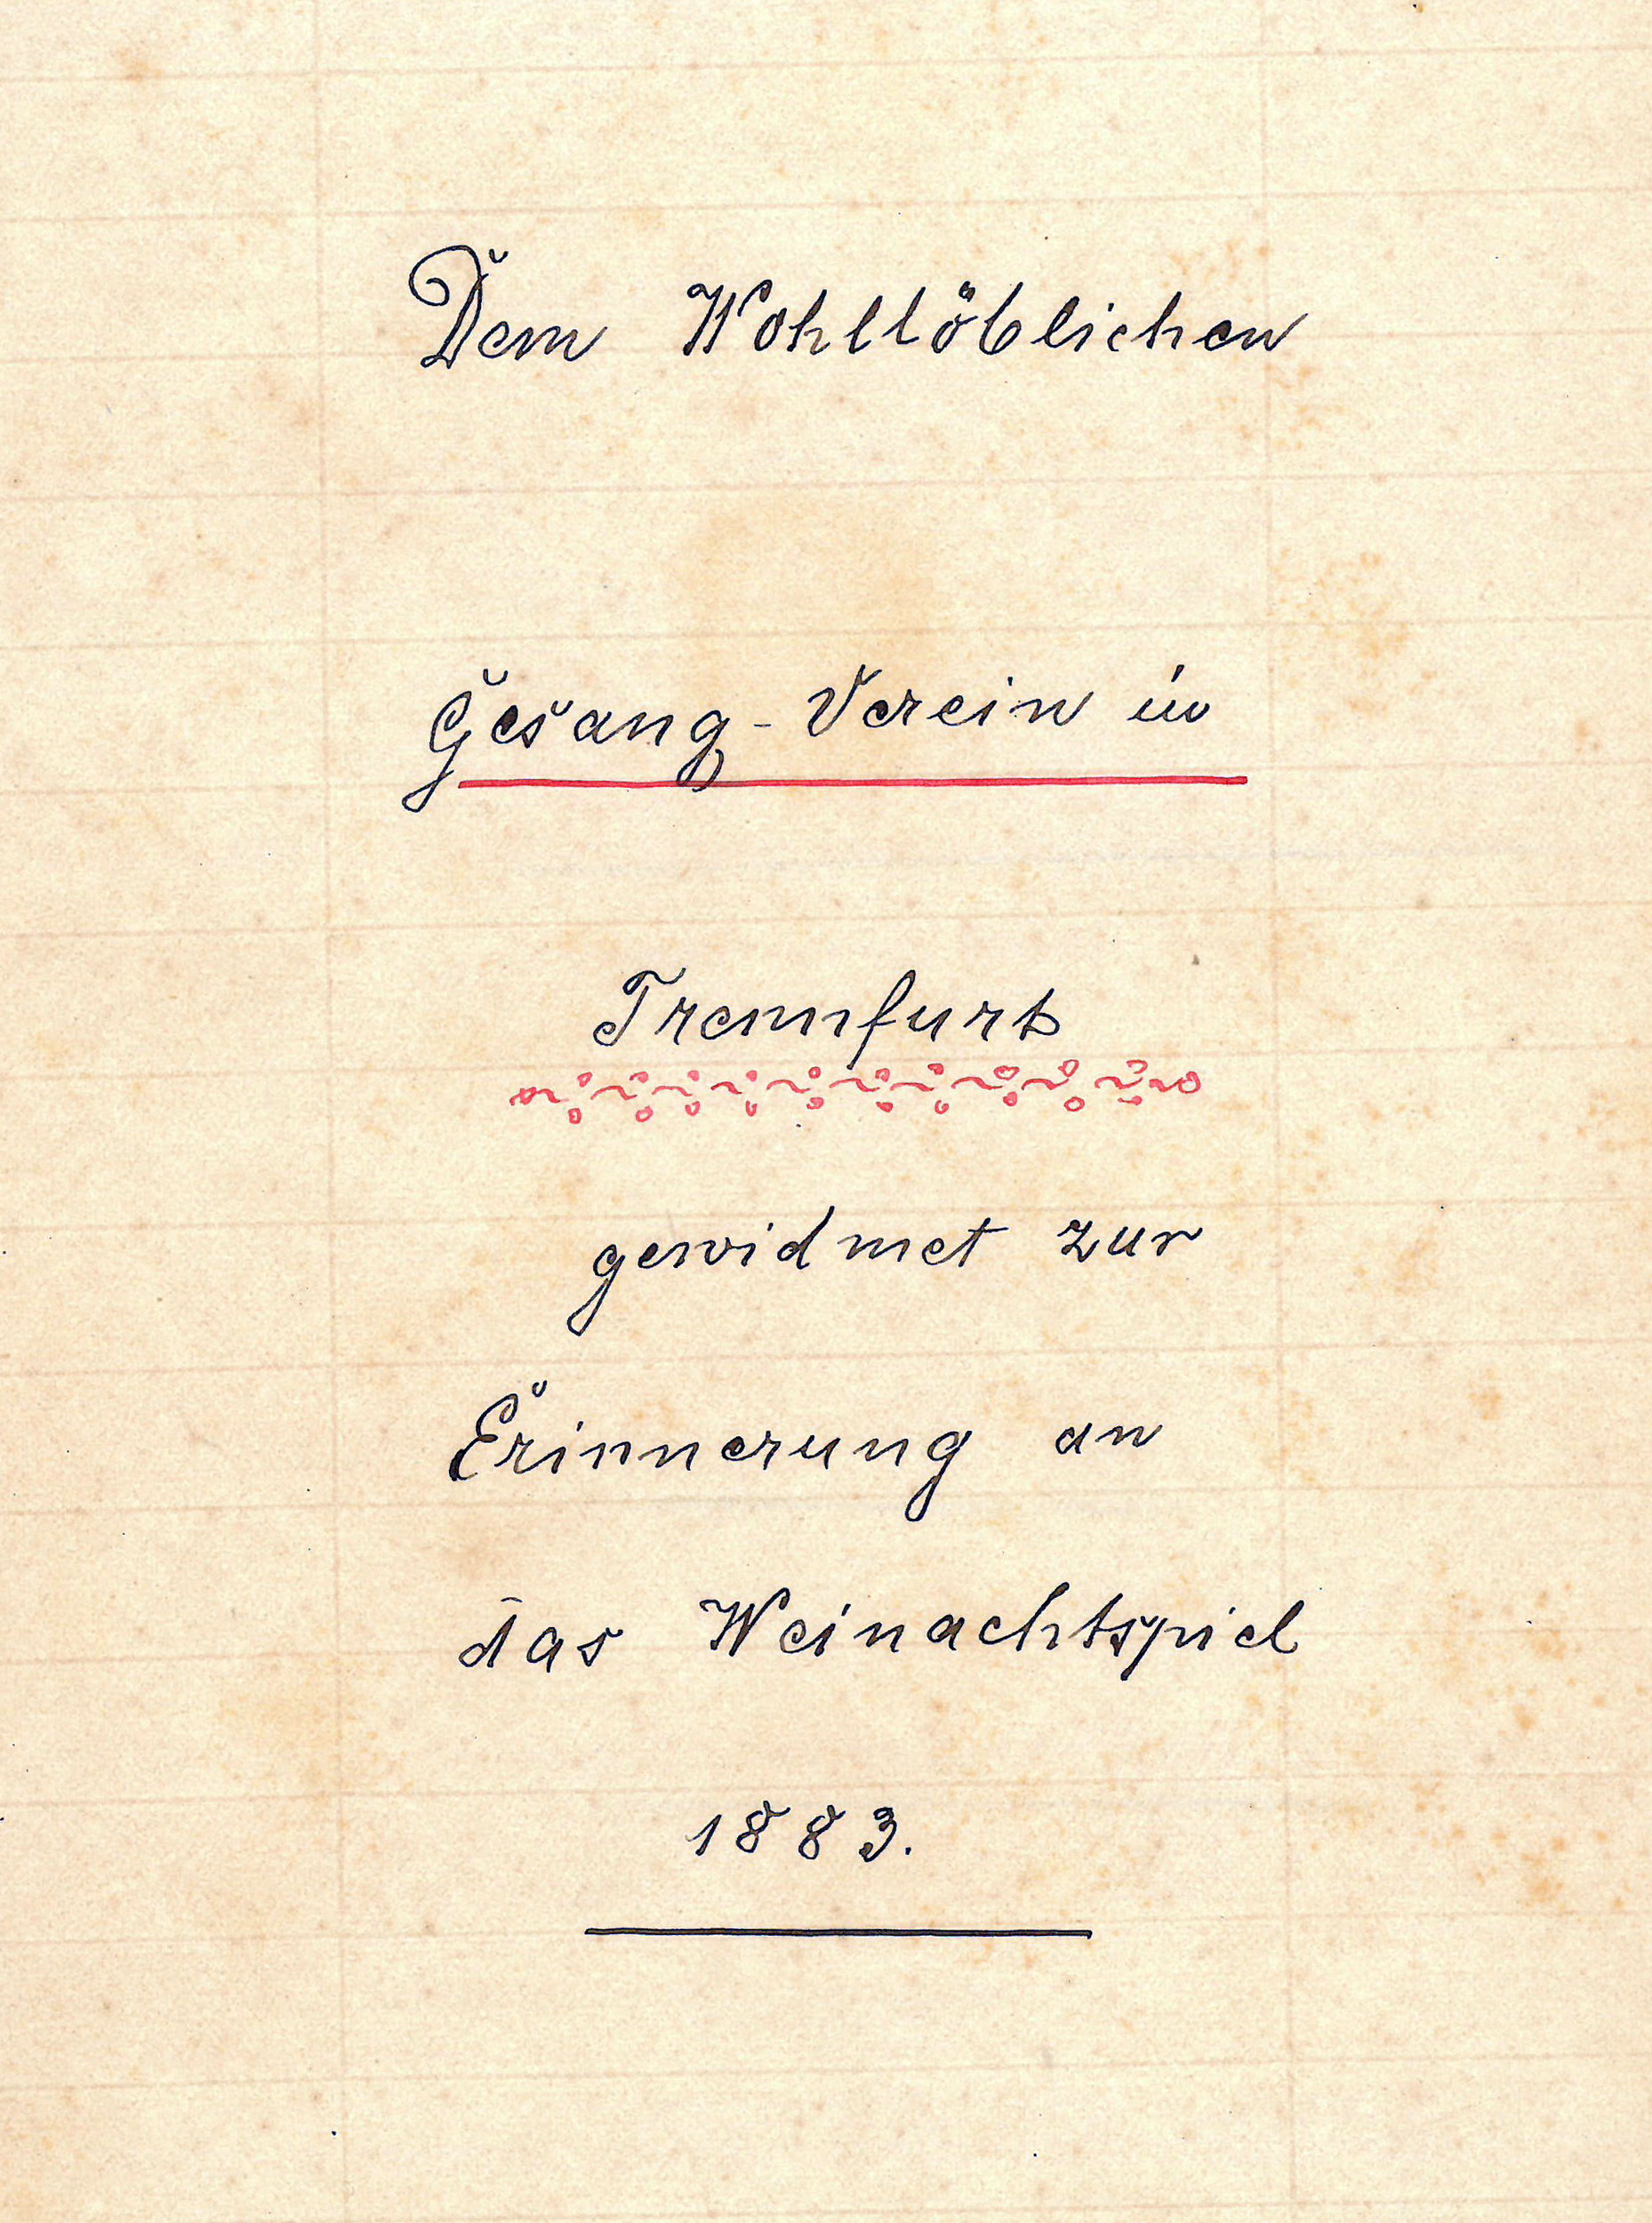 Dem Wohllöblichen
Gesang-Verein in
Trennfurt
gewidmet zur
Erinnerung an
das Weinachtspiel
1883.